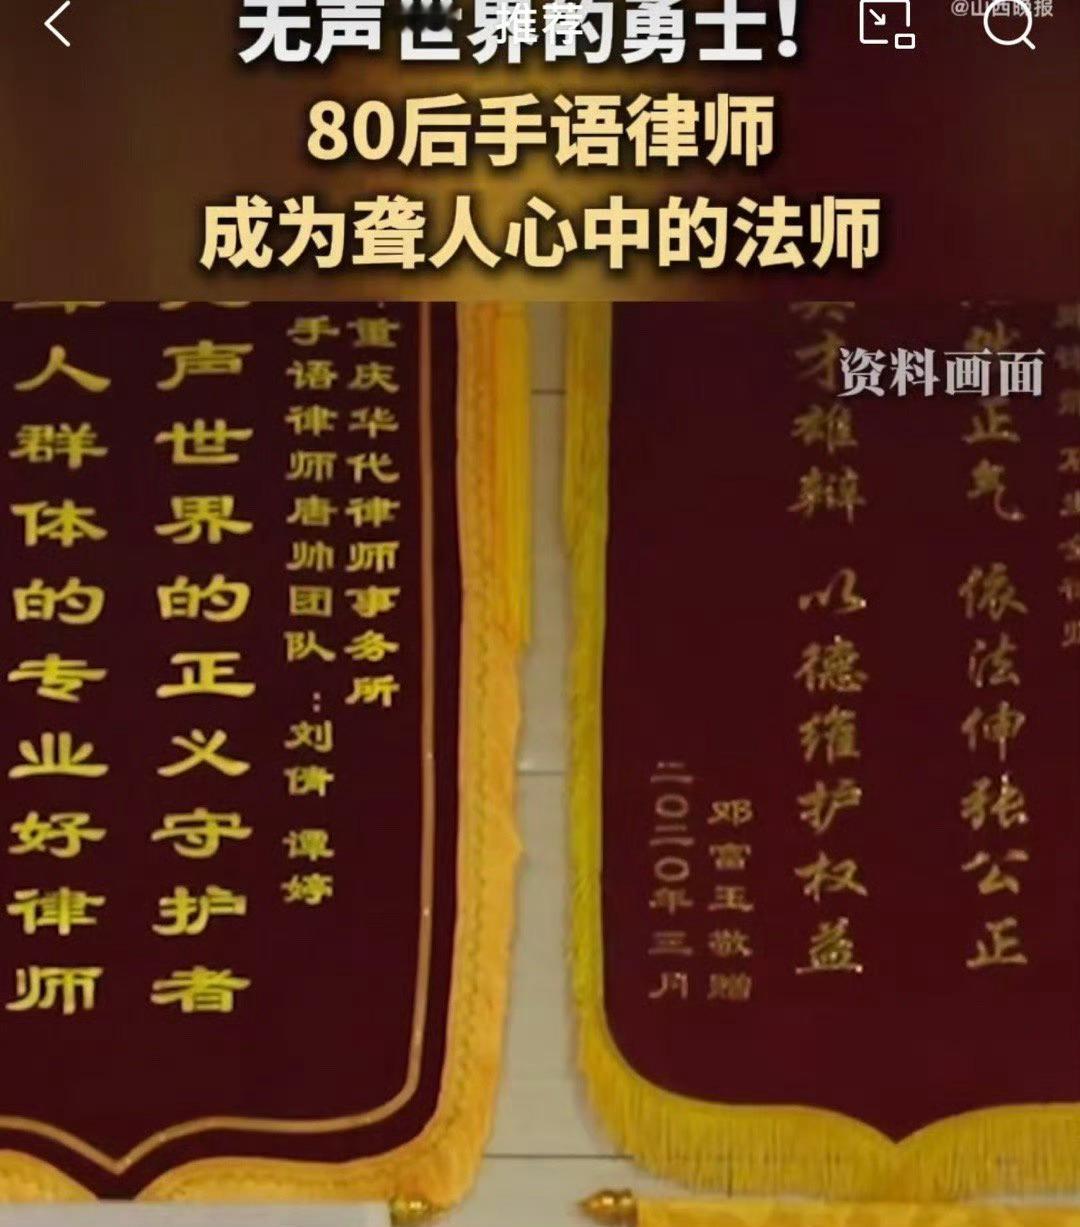 推荐
@山西晚报
无声世界的勇士!
80后手语律师
成为聋人心中的法师
资料画面
重庆华代律师事务所
手语律师唐帅团队:刘倩 谭婷
声世界的正义守护者
人群体的专业好律师
正气 依法伸张公正
才雄辩 以德维护权益
邓富玉敬赠
二〇二〇年三月